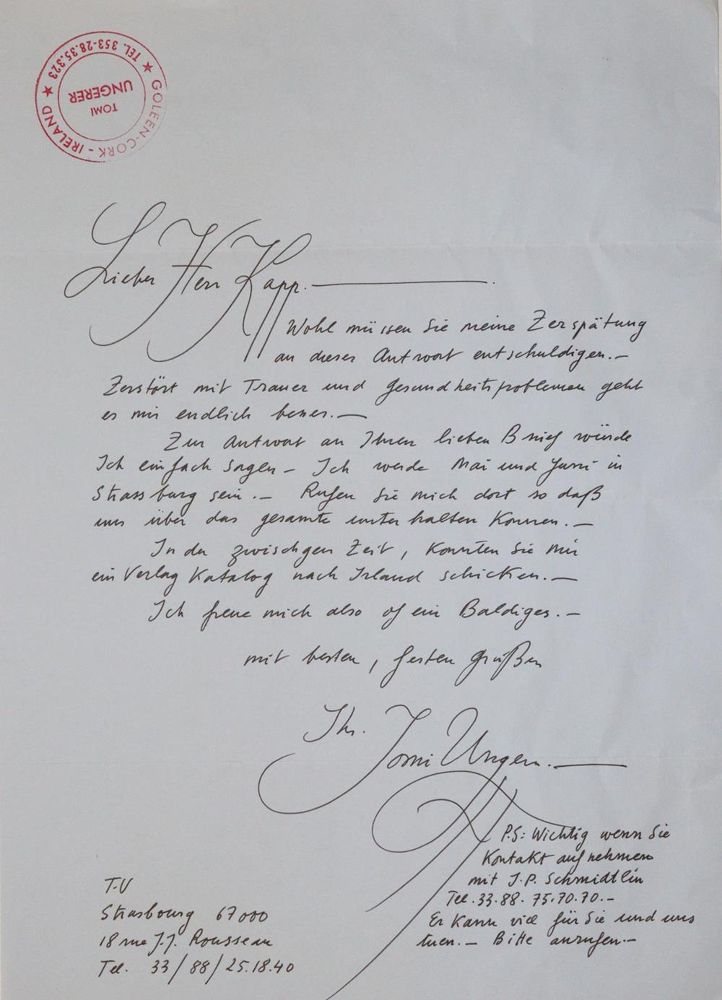 GOLEEN-CORK - IRELAND ★ TEL. 353-28.35.323 ★
TOMI
UNGERER
Lieber Herr Kapp.—
Wohl müssen Sie meine Zerspätung
an dieser Antwort entschuldigen.—
Zerstört mit Trauer und Gesundheitsproblemen geht
es mir endlich besser.—
Zur Antwort an Ihren lieben Brief würde
Ich einfach sagen – Ich werde Mai und Juni in
Strassburg sein.— Rufen Sie mich dort so daß
uns über das gesamte unterhalten Konnen.—
In der zwischgen Zeit, Konnten Sie mir
ein Verlag Katalog nach Irland schicken.—
Ich freue mich also of ein Baldiges.—
mit besten, festen Grüßen
Ihr. Tomi Ungerer.—
P.S: Wichtig wenn Sie
Kontakt aufnehmen
mit J.P. Schmidtlin
Tel. 33.88.75.70.70.–
Er Kann viel für Sie und uns
tuen.— Bitte anrufen.—
T.U
Strasbourg 67000
18 rue J.J. Rousseau
Tel. 33/88/25.18.40